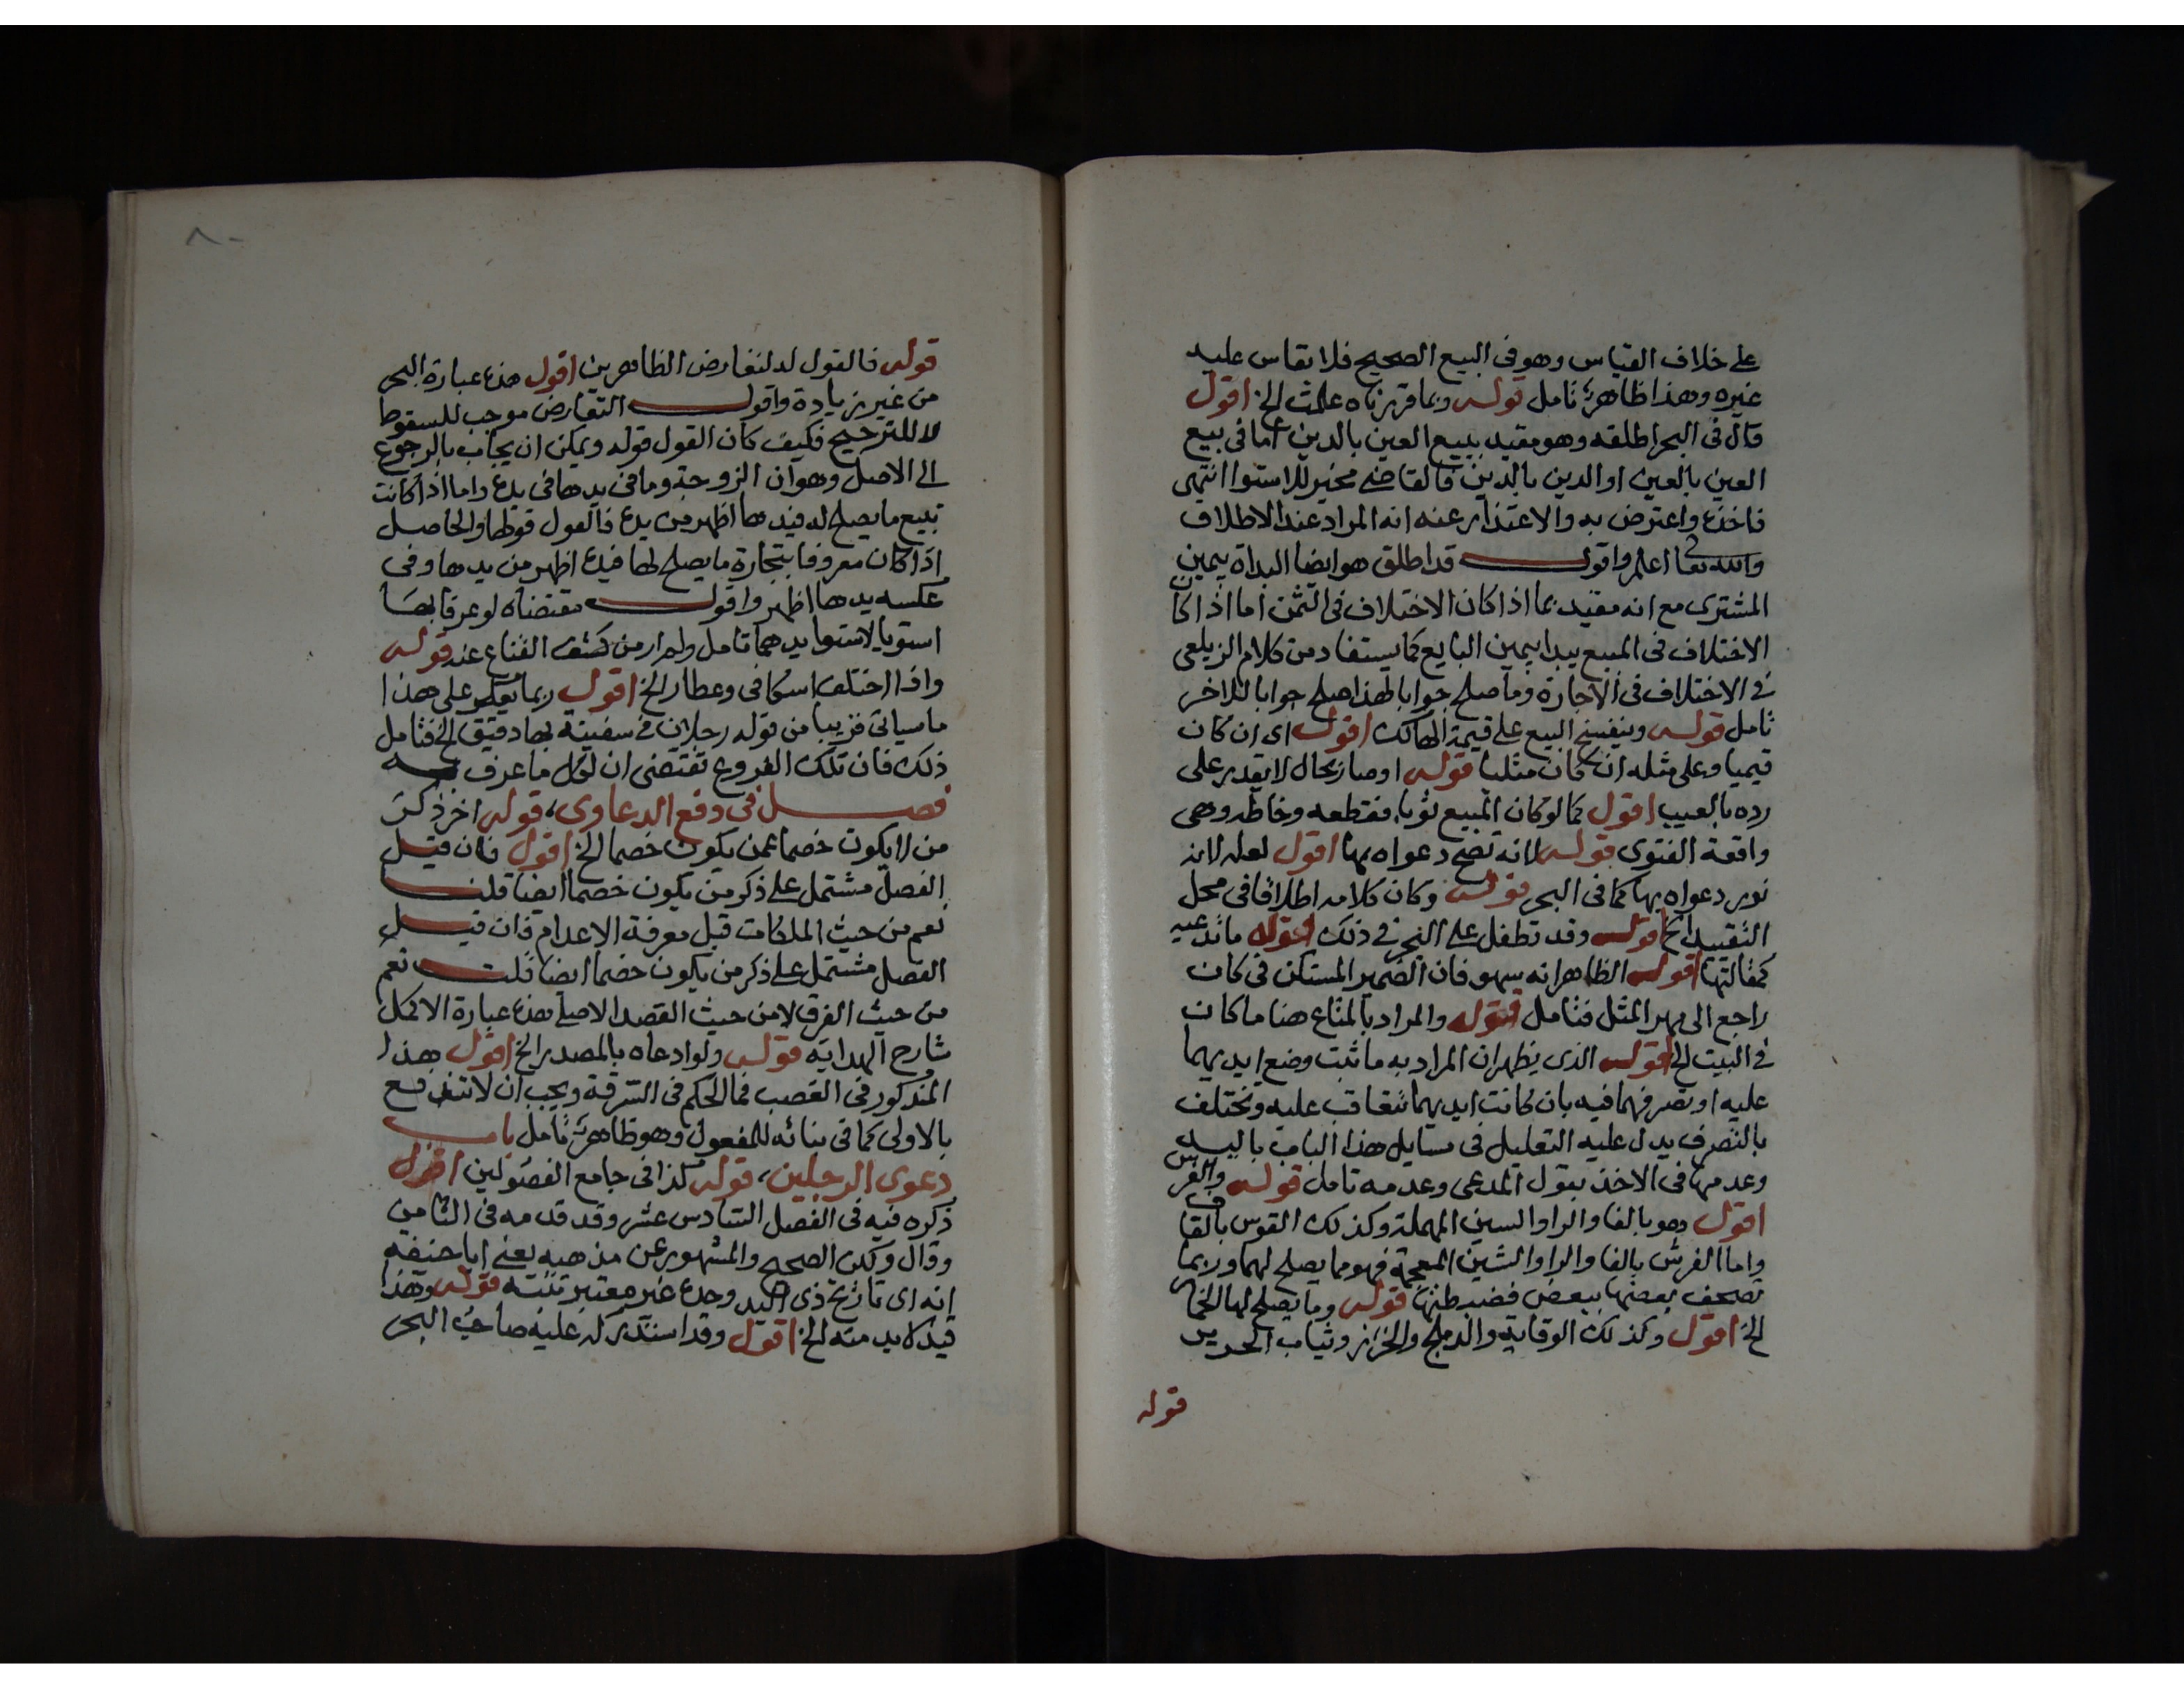 على خلاف القياس وهو فى البيع الصحيح فلا يقاس عليه
غيره وهذا ظاهر تامل قوله وبما قررناه علمت الخ اقول
قال فى البحر اطلقه وهو مقيد ببيع العين بالدين اما فى بيع
العين بالعين او الدين بالدين فالقاضى مخير للاستوا انتهى
فاخذه واعترض به والاعتذار عنه انه المراد عند الاطلاق
والله تعا اعلم واقول قد اطلق هو ايضا البداة بيمين
المشترى مع انه مقيد بما اذا كان الاختلاف فى الثمن اما اذا كان
الاختلاف فى المبيع يبدا بيمين البايع كما يستفاد من كلام الزيلعى
فى الاختلاف فى الاجارة وما صلح جوابا لهذا صلح جوابا للاخر
تامل قوله وينفسخ البيع على قيمة الهالك اقول اى ان كان
قيميا وعلى مثله ان كان مثليا قوله او صار بحال لا يقدر على
رده بالعيب اقول كما لو كان المبيع ثوبا فقطعه وخاطه وهى
واقعة الفتوى قوله لانه تصح دعواه بها اقول لعله لانه
نور دعواه بها كما فى البحر قوله وكان كلامه اطلاقا فى محل
التقييد الخ اقول وقد تطفل على البحر فى ذلك قوله ما تدعيه
كمقالتها اقول الظاهر انه سهو فان الضمير المستكن فى كان
راجع الى مهر المثل فتامل قوله والمراد بالمتاع هنا ما كان
فى البيت الخ اقول الذى يظهر ان المراد به ما ثبت وضع ايديهما
عليه او تصرفهما فيه بان كانت ايديهما تتعاقب عليه وتختلف
بالتصرف يدل عليه التعليل فى مسايل هذا الباب باليد
وعدمها فى الاخذ بقول المدعى وعدمه تامل قوله والفرس
اقول وهو بالفا والرا والسين المهملة وكذلك القوس بالقاف
واما الفرش بالفا والرا والشين المعجمة فهو مما يصلح لهما وربما
تصحف بعضها ببعض فضبطتها قوله وما يصلح لها الخمار
الخ اقول وكذلك الوقاية والدملج والخرز وثياب الحرير
قوله
٨٠
قوله فالقول له لتعارض الظاهرين اقول هذه عبارة البحر
من غير زيادة واقول التعارض موجب للسقوط
لا للترجيح فكيف كان القول قوله ويمكن ان يجاب بالرجوع
الى الاصل وهو ان الزوجة وما فى يدها فى يده واما اذا كانت
تبيع ما يصلح له فيدها اظهر من يده فالقول قولها والحاصل
اذا كان معروفا بتجارة ما يصلح لها فيده اظهر من يدها وفى
عكسه يدها اظهر واقول مقتضاه لو عرفا بها
استويا لاستوا يدهما تامل ولم ار من كشف القناع عند قوله
واذا اختلف اسكافى وعطار الخ اقول ربما يعكر على هذا
ما سياتى قريبا من قوله رجلان فى سفينة بها دقيق الخ فتامل
ذلك فان تلك الفروع تقتضى ان لكل ما عرف به
فصل فى دفع الدعاوى، قوله اخر ذكر
من لا يكون خصما عمن يكون خصما الخ اقول فان قيل
الفصل مشتمل على ذكر من يكون خصما ايضا قلت
نعم من حيث الملكات قبل معرفة الاعدام فان قيل
الفصل مشتمل على ذكر من يكون خصما ايضا قلت نعم
من حيث الفرق لا من حيث القصد الاصلى هذه عبارة الاكمل
شارح الهداية قوله ولو ادعاه بالمصدر الخ اقول هذا
المذكور فى الغصب فما الحكم فى السرقة ويجب ان لا تندفع
بالاولى كما فى بنائه للمفعول وهو ظاهر تامل باب
دعوى الرجلين، قوله كذا فى جامع الفصولين اقول
ذكره فيه فى الفصل السادس عشر وقد قدمه فى الثامن
وقال ولكن الصحيح والمشهور عن مذهبه يعنى ابا حنيفه
انه اى تاريخ ذى اليد وحده غير معتبر تنبه قوله وهذا
قيد لا بد منه الخ اقول وقد استدركه عليه صاحب البحر